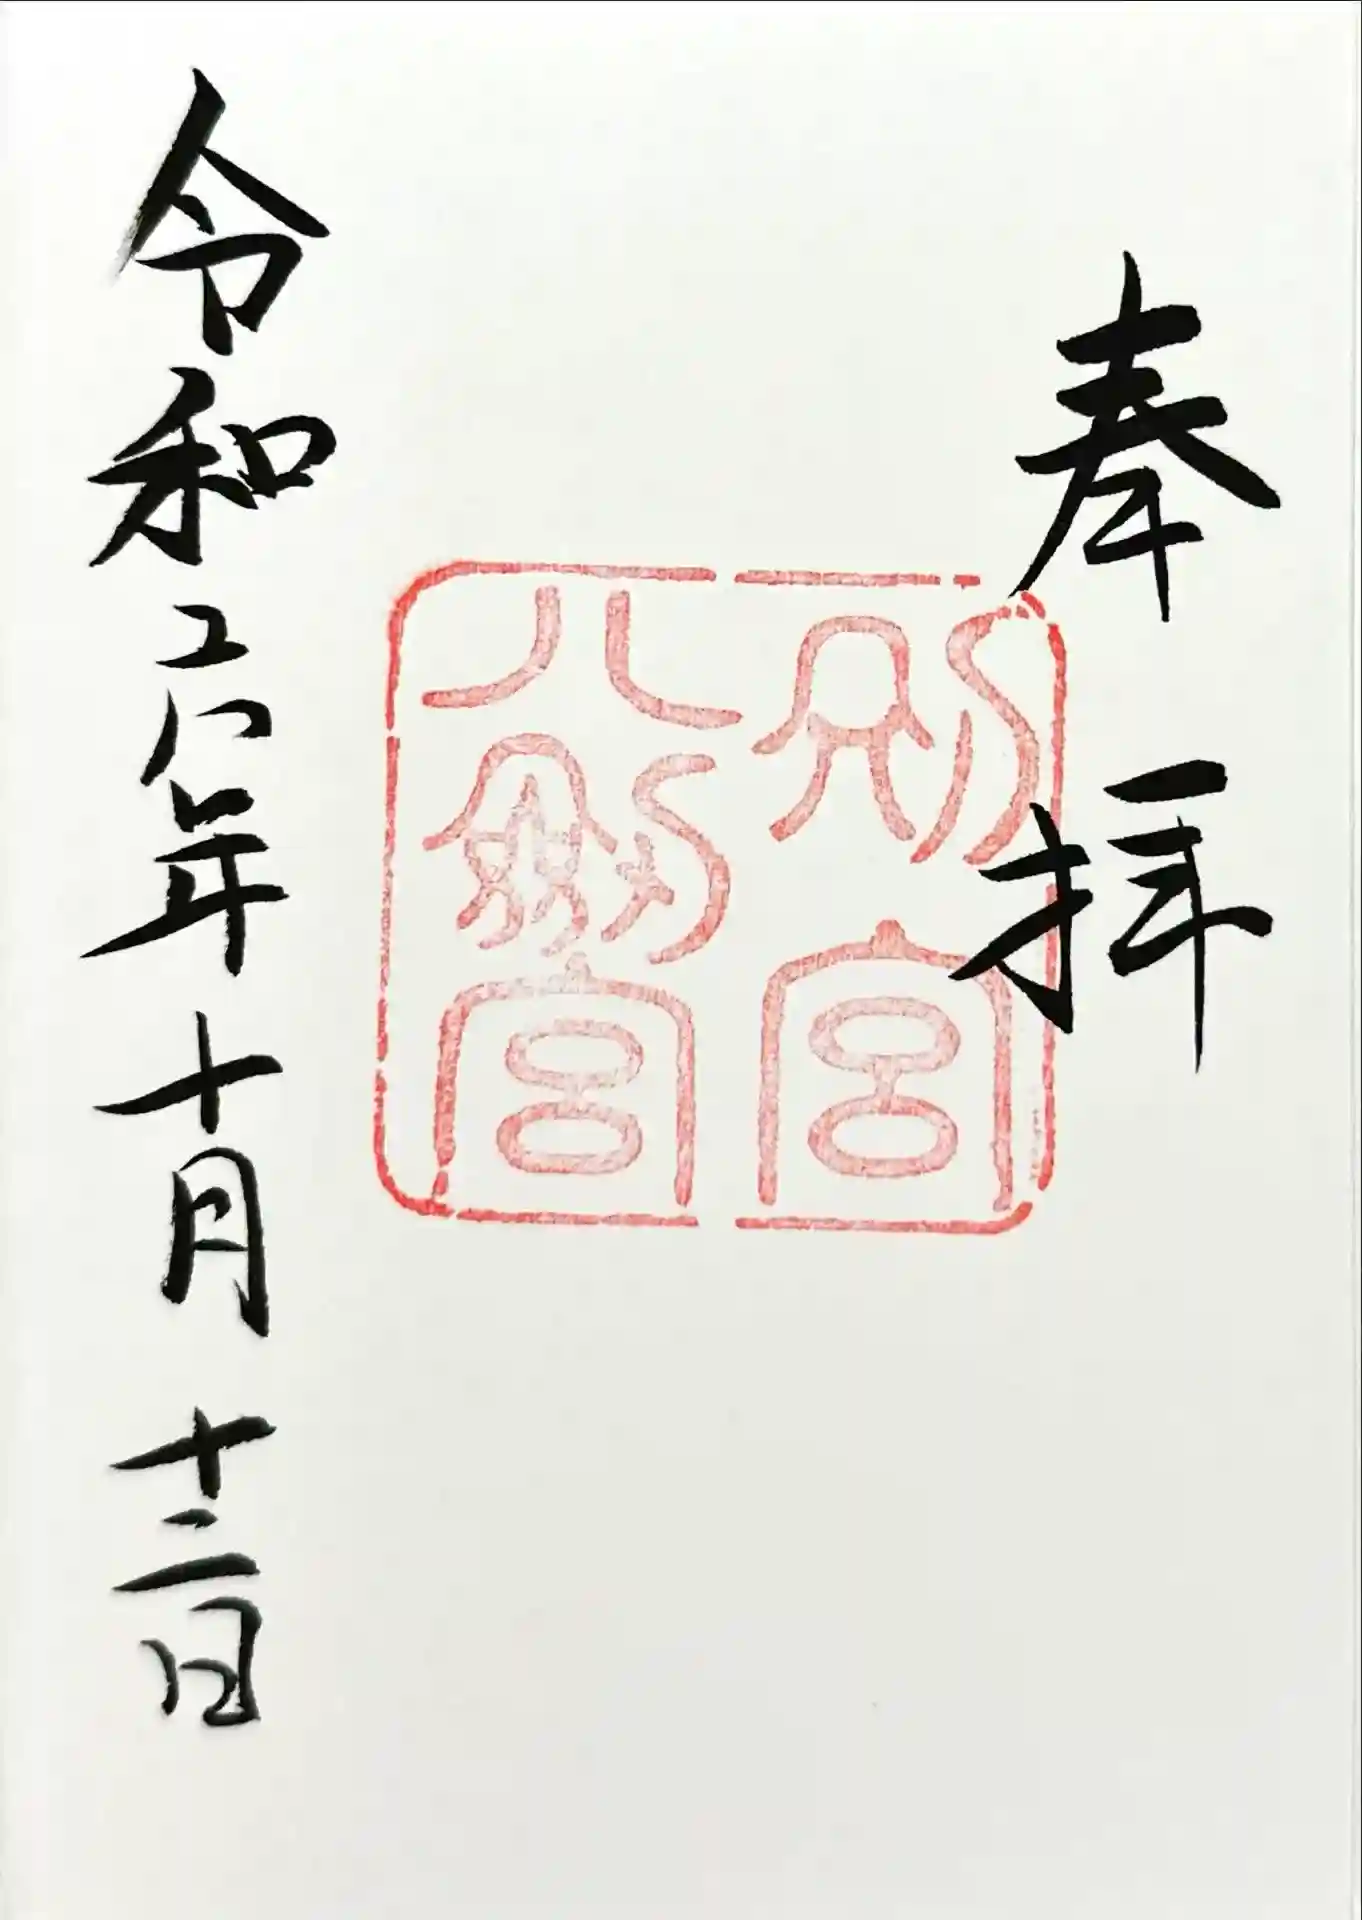 奉拝
別宮
八劔宮
令和六年十月十二日